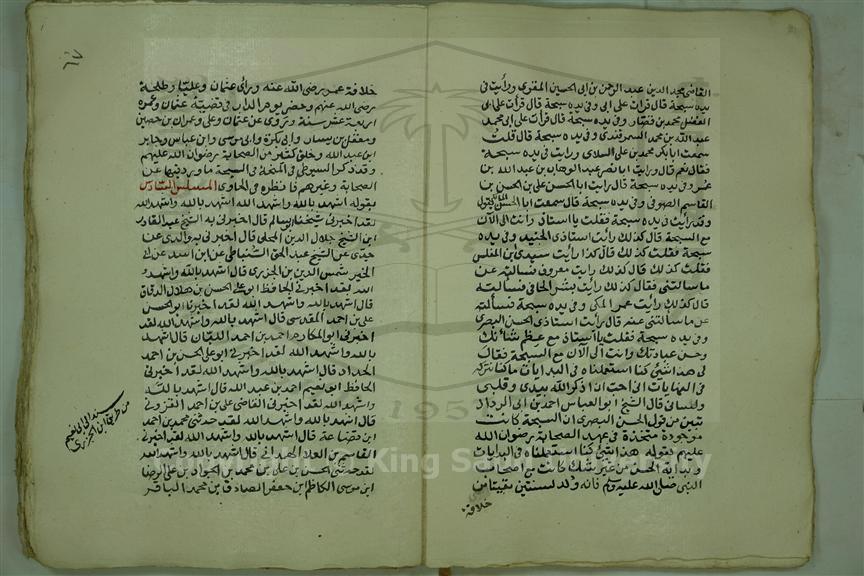 القاضي مجد الدين عبد الرحمن بن ابي الحسين المقري ورأيت في
يده سبحة قال قرأت على ابي وفي يده سبحة قال قرأت على ابي
الفضل محمد بن وفي يده سبحة قال قرأت على ابي محمد
عبد الله بن محمد السمرقندي وفي يده سبحة قال قلت
سمعت ابا بكر محمد بن علي السلامي ورايت في يده سبحة
فقال نعم قال ورايت ابا نصر عبد الوهاب بن عبد الله بن
عمر وفي يده سبحة قال رايت ابا الحسن علي بن الحسن بن
القاسم الصوفي وفي يده سبحة قال سمعت ابا الحسن يقول
وقد رايت في يده سبحة فقلت يا استاذ وانت الى الآن
مع السبحة قال كذلك رأيت استاذي الجنيد وفي يده
سبحة فقلت كذلك قال كذا رأيت سيدي بن المغلس
فقلت كذلك قال كذلك رايت معروف فسالته عن
ما سالتني فقال كذلك رايت بشر الحافي فسالته
قال كذلك رأيت عمر المكي وفي يده سبحة فسألته
عن ما سألتني عنه قال رأيت استاذي الحسن البصري
وفي يده سبحة فقلت يا استاذ مع عظم شانك
وحسن عبادتك وانت الى الآن مع السبحة فقال
لي هذا شئ كنا استعملناه في البدايات ما كنا نتركه
في النهايات اني احب ان اذكر الله بيدي وقلبي
ولساني قال الشيخ ابو العباس احمد بن ابي الرداد
تبين من قول الحسن البصري ان السبحة كانت
موجودة متخذة في عهد الصحابة رضوان الله
عليهم لقوله هذا شئ كنا استعملناه في البدايات
وبداية الحسن من غير شك كانت مع اصحاب
النبي صلى الله عليه وسلم فانه ولد لسنتين بقيتا من
خلافة
خلافة عمر رضي الله عنه ورأى عثمان وعليا وطلحة
رضي الله عنهم وحضر يوم الدار في قضية عثمان وعمره
اربعة عشر سنة وتروى عن عثمان وعلي وعمران بن حصين
ومعقل بن يسار وابي بكرة وابي موسى وابن عباس وجابر
ابن عبد الله وخلق كثير من الصحابة رضوان الله عليهم
وقد ذكر السيوطي في المنحة في السبحة ما ورد فيها عن
الصحابة وغيرهم فانظره في الحاوي المسلسل السادس
بقوله اشهد بالله واشهد الله اشهد بالله واشهد الله
لقد اخبرني شيخنا سالم قال اخبرني به الشيخ عبد القادر
ابن الشيخ جلال الدين المحلي قال اخبرني به والدي عن
جدي عن الشيخ عبد الحق السنباطي عن ابن اسد عن ابي
الخير شمس الدين بن الجزري قال اشهد بالله واشهد
الله لقد اخبرني الحافظ ابو علي الحسن بن هلال الدقاق
قال اشهد بالله واشهد الله لقد اخبرنا ابو الحسن
علي بن احمد المقدسي قال اشهد بالله واشهد الله لقد
اخبرني ابو المكارم احمد بن احمد اللبان قال اشهد
بالله واشهد الله لقد اخبرني ابو علي الحسن بن احمد
الحداد قال اشهد بالله واشهد الله لقد اخبرني
الحافظ ابو نعيم احمد بن عبد الله قال اشهد بالله
واشهد الله لقد اخبرني القاضي علي بن احمد القزويني
قال اشهد بالله واشهد الله لقد حدثني محمد بن احمد
ابن قضاعة قال اشهد بالله واشهد الله لقد اخبرني
القاسم بن العلا الهمداني قال اشهد بالله واشهد الله
لقد حدثني الحسن بن علي بن محمد بن الجواد بن علي الرضا
ابن موسى الكاظم ابن جعفر الصادق بن محمد الباقر
سند الى ابي نعيم
من طريق ابن الجزري
٦٧
1957
King Saud University